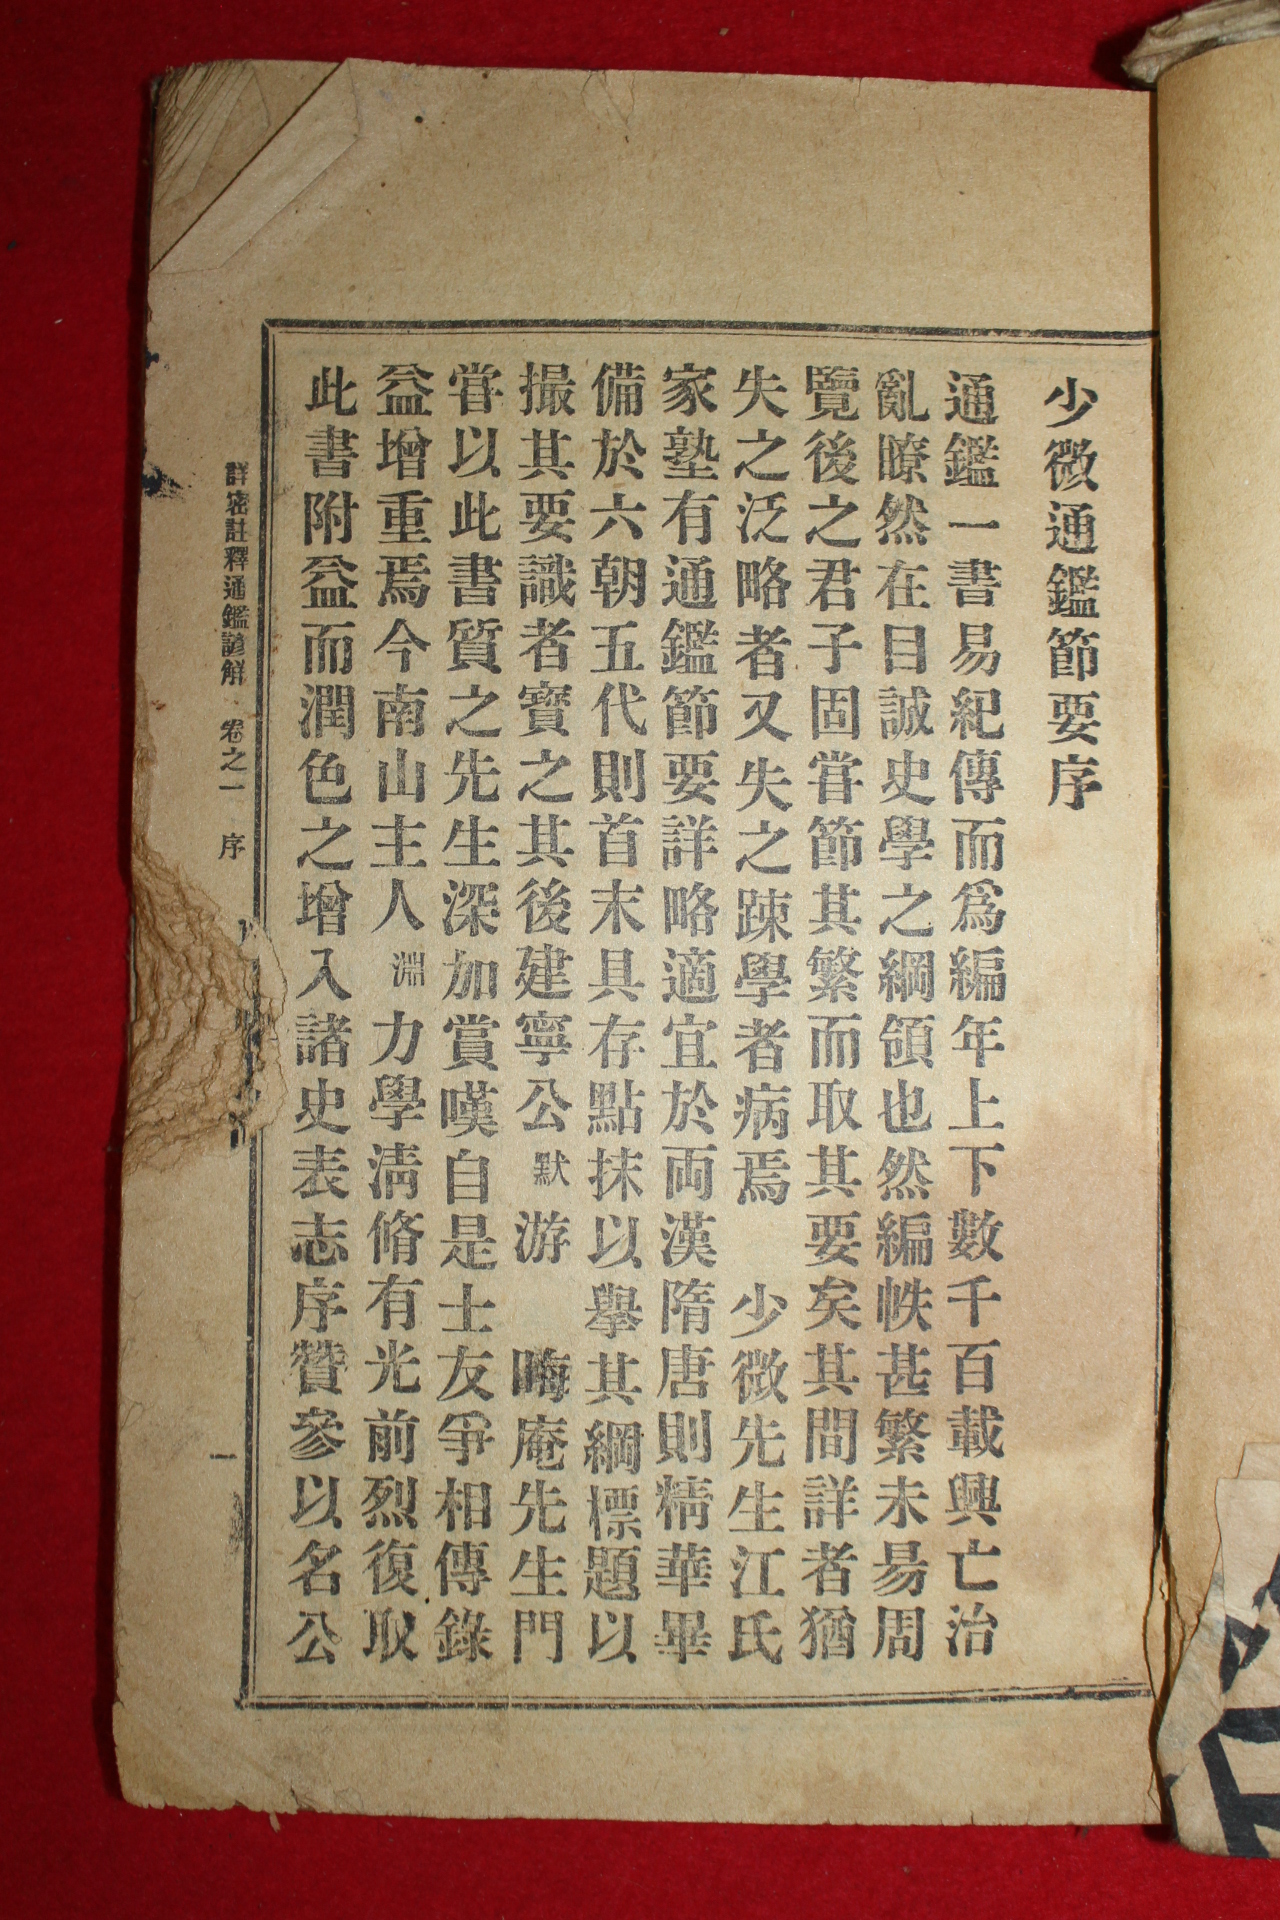 少微通鑑節要序
通鑑一書易紀傳而爲編年上下數千百載興亡治
亂瞭然在目誠史學之綱領也然編帙甚繁未易周
覽後之君子固甞節其繁而取其要矣其間詳者猶
失之泛略者又失之疎學者病焉 少微先生江氏
家塾有通鑑節要詳略適宜於両漢隋唐則精華畢
備於六朝五代則首末具存點抹以擧其綱標題以
撮其要識者寶之其後建寧公默游 晦庵先生門
甞以此書質之先生深加賞嘆自是士友爭相傳錄
益增重焉今南山主人淵力學淸脩有光前烈復取
此書附益而潤色之增入諸史表志序贊參以名公
詳密註釋通鑑諺解 卷之一 序 一